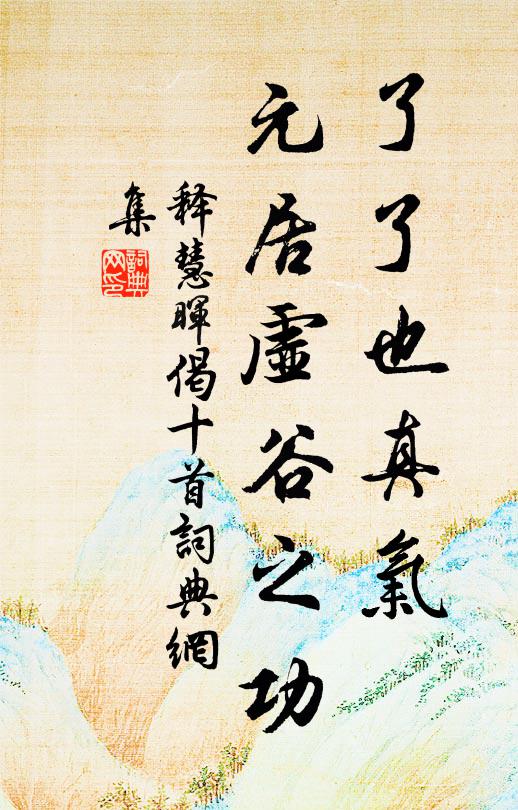 了了也真氣
元居虛谷之功
释慧暉偈十首詞典網
集
詞典
网印